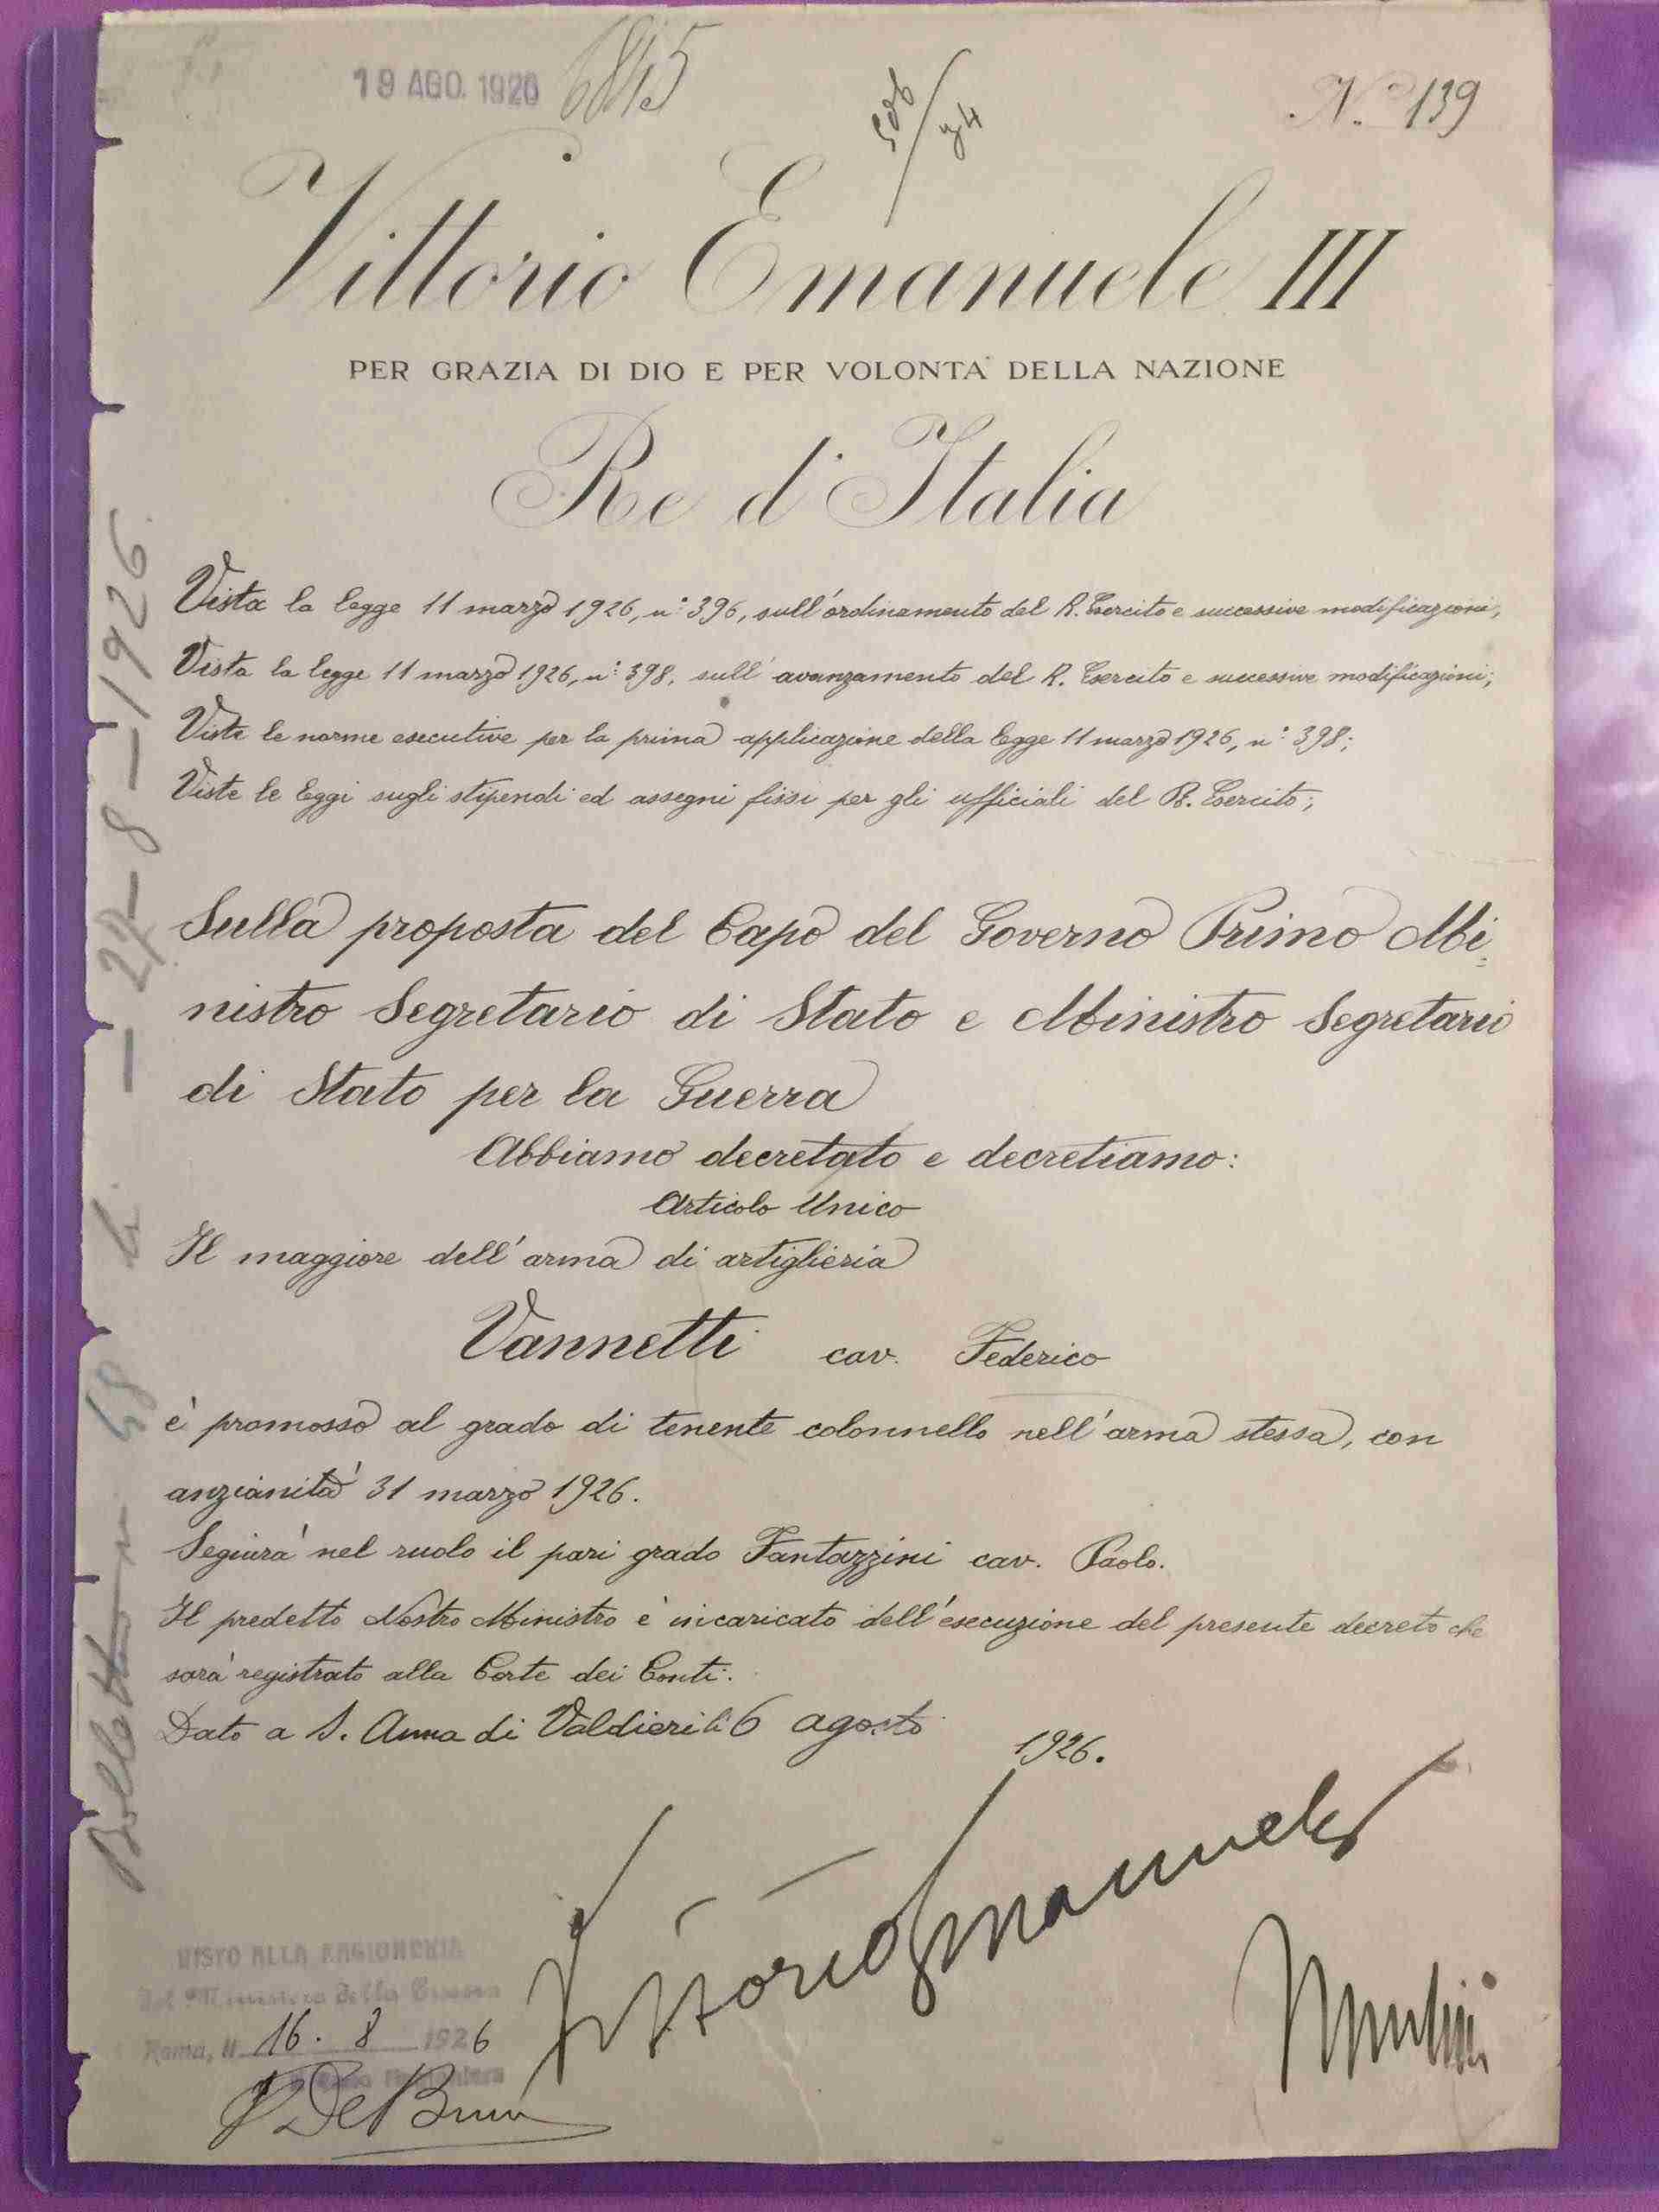 19 AGO. 1926
6845
N.º 139
Vittorio Emanuele III
PER GRAZIA DI DIO E PER VOLONTÀ DELLA NAZIONE
Re d'Italia
Vista la legge 11 marzo 1926, n.º 396, sull'ordinamento del R. Esercito e successive modificazioni;
Vista la legge 11 marzo 1926, n.º 398, sull'avanzamento del R. Esercito e successive modificazioni;
Viste le norme esecutive per la prima applicazione della legge 11 marzo 1926, n.º 398;
Viste le leggi sugli stipendi ed assegni fissi per gli ufficiali del R. Esercito;
Sulla proposta del Capo del Governo Primo Mi-
nistro Segretario di Stato e Ministro Segretario
di Stato per la Guerra
Abbiamo decretato e decretiamo:
Articolo Unico
Il maggiore dell'arma di artiglieria
Vannetti cav. Federico
è promosso al grado di tenente colonnello nell'arma stessa, con
anzianità 31 marzo 1926.
Seguirà nel ruolo il pari grado Fantazzini cav. Paolo.
Il predetto Nostro Ministro è incaricato dell'esecuzione del presente decreto che
sarà registrato alla Corte dei Conti.
Dato a S. Anna di Valdieri li 6 agosto 1926.
Vittorio Emanuele
VISTO ALLA RAGIONERIA
del Ministero della Guerra
Roma, li 16. 8 1926
27-8-1926